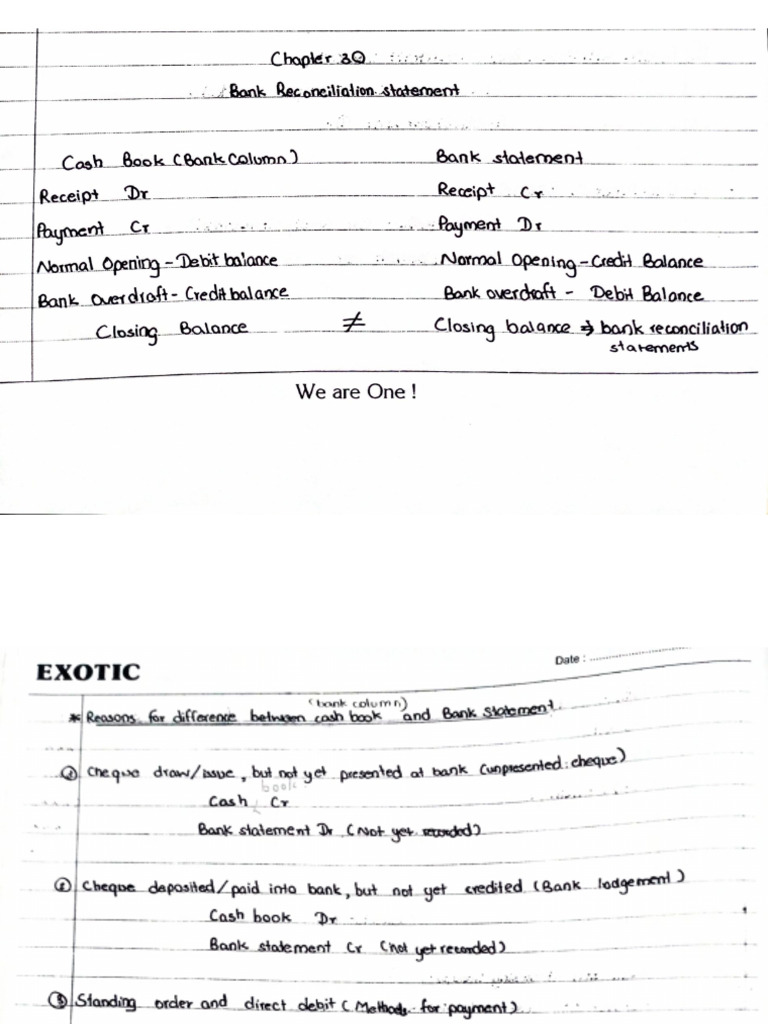 Chapter 30
Bank Reconciliation statement
Cash Book (Bank Column) Bank statement
Receipt Dr Receipt Cr
Payment Cr Payment Dr
Normal Opening - Debit balance Normal Opening - Credit Balance
Bank overdraft - Credit balance Bank overdraft - Debit Balance
Closing Balance ≠ Closing balance → bank reconciliation
statements
We are One !
EXOTIC
Date :
(bank column)
* Reasons for difference between cash book and Bank Statement
① Cheque draw/issue, but not yet presented at bank (unpresented cheque)
book
Cash Cr
Bank statement Dr (Not yet recorded)
② Cheque deposited/paid into bank, but not yet credited (Bank lodgement)
Cash book Dr
Bank statement Cr (not yet recorded)
③ Standing order and direct debit (Methods for payment)